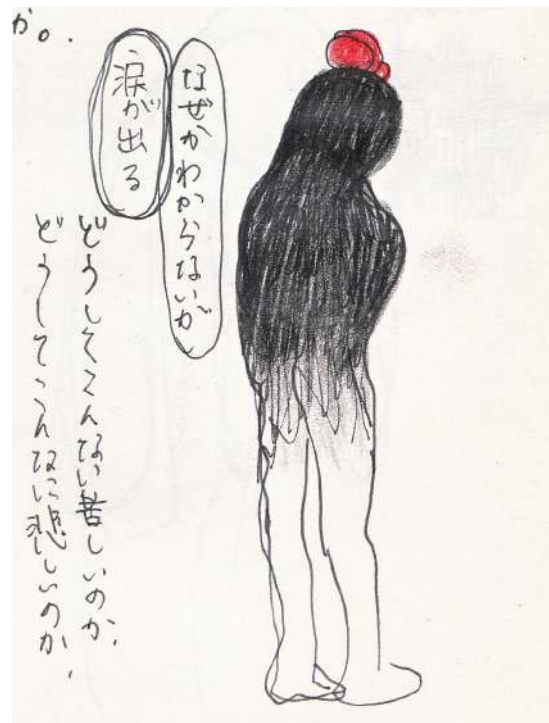 か。
なぜかわからないが
涙が出る
どうしてこんなに苦しいのか、
どうしてこんなに悲しいのか、